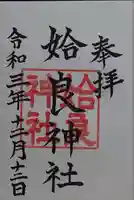 奉拝
始良神社
姶良神社
令和三年十二月十二日